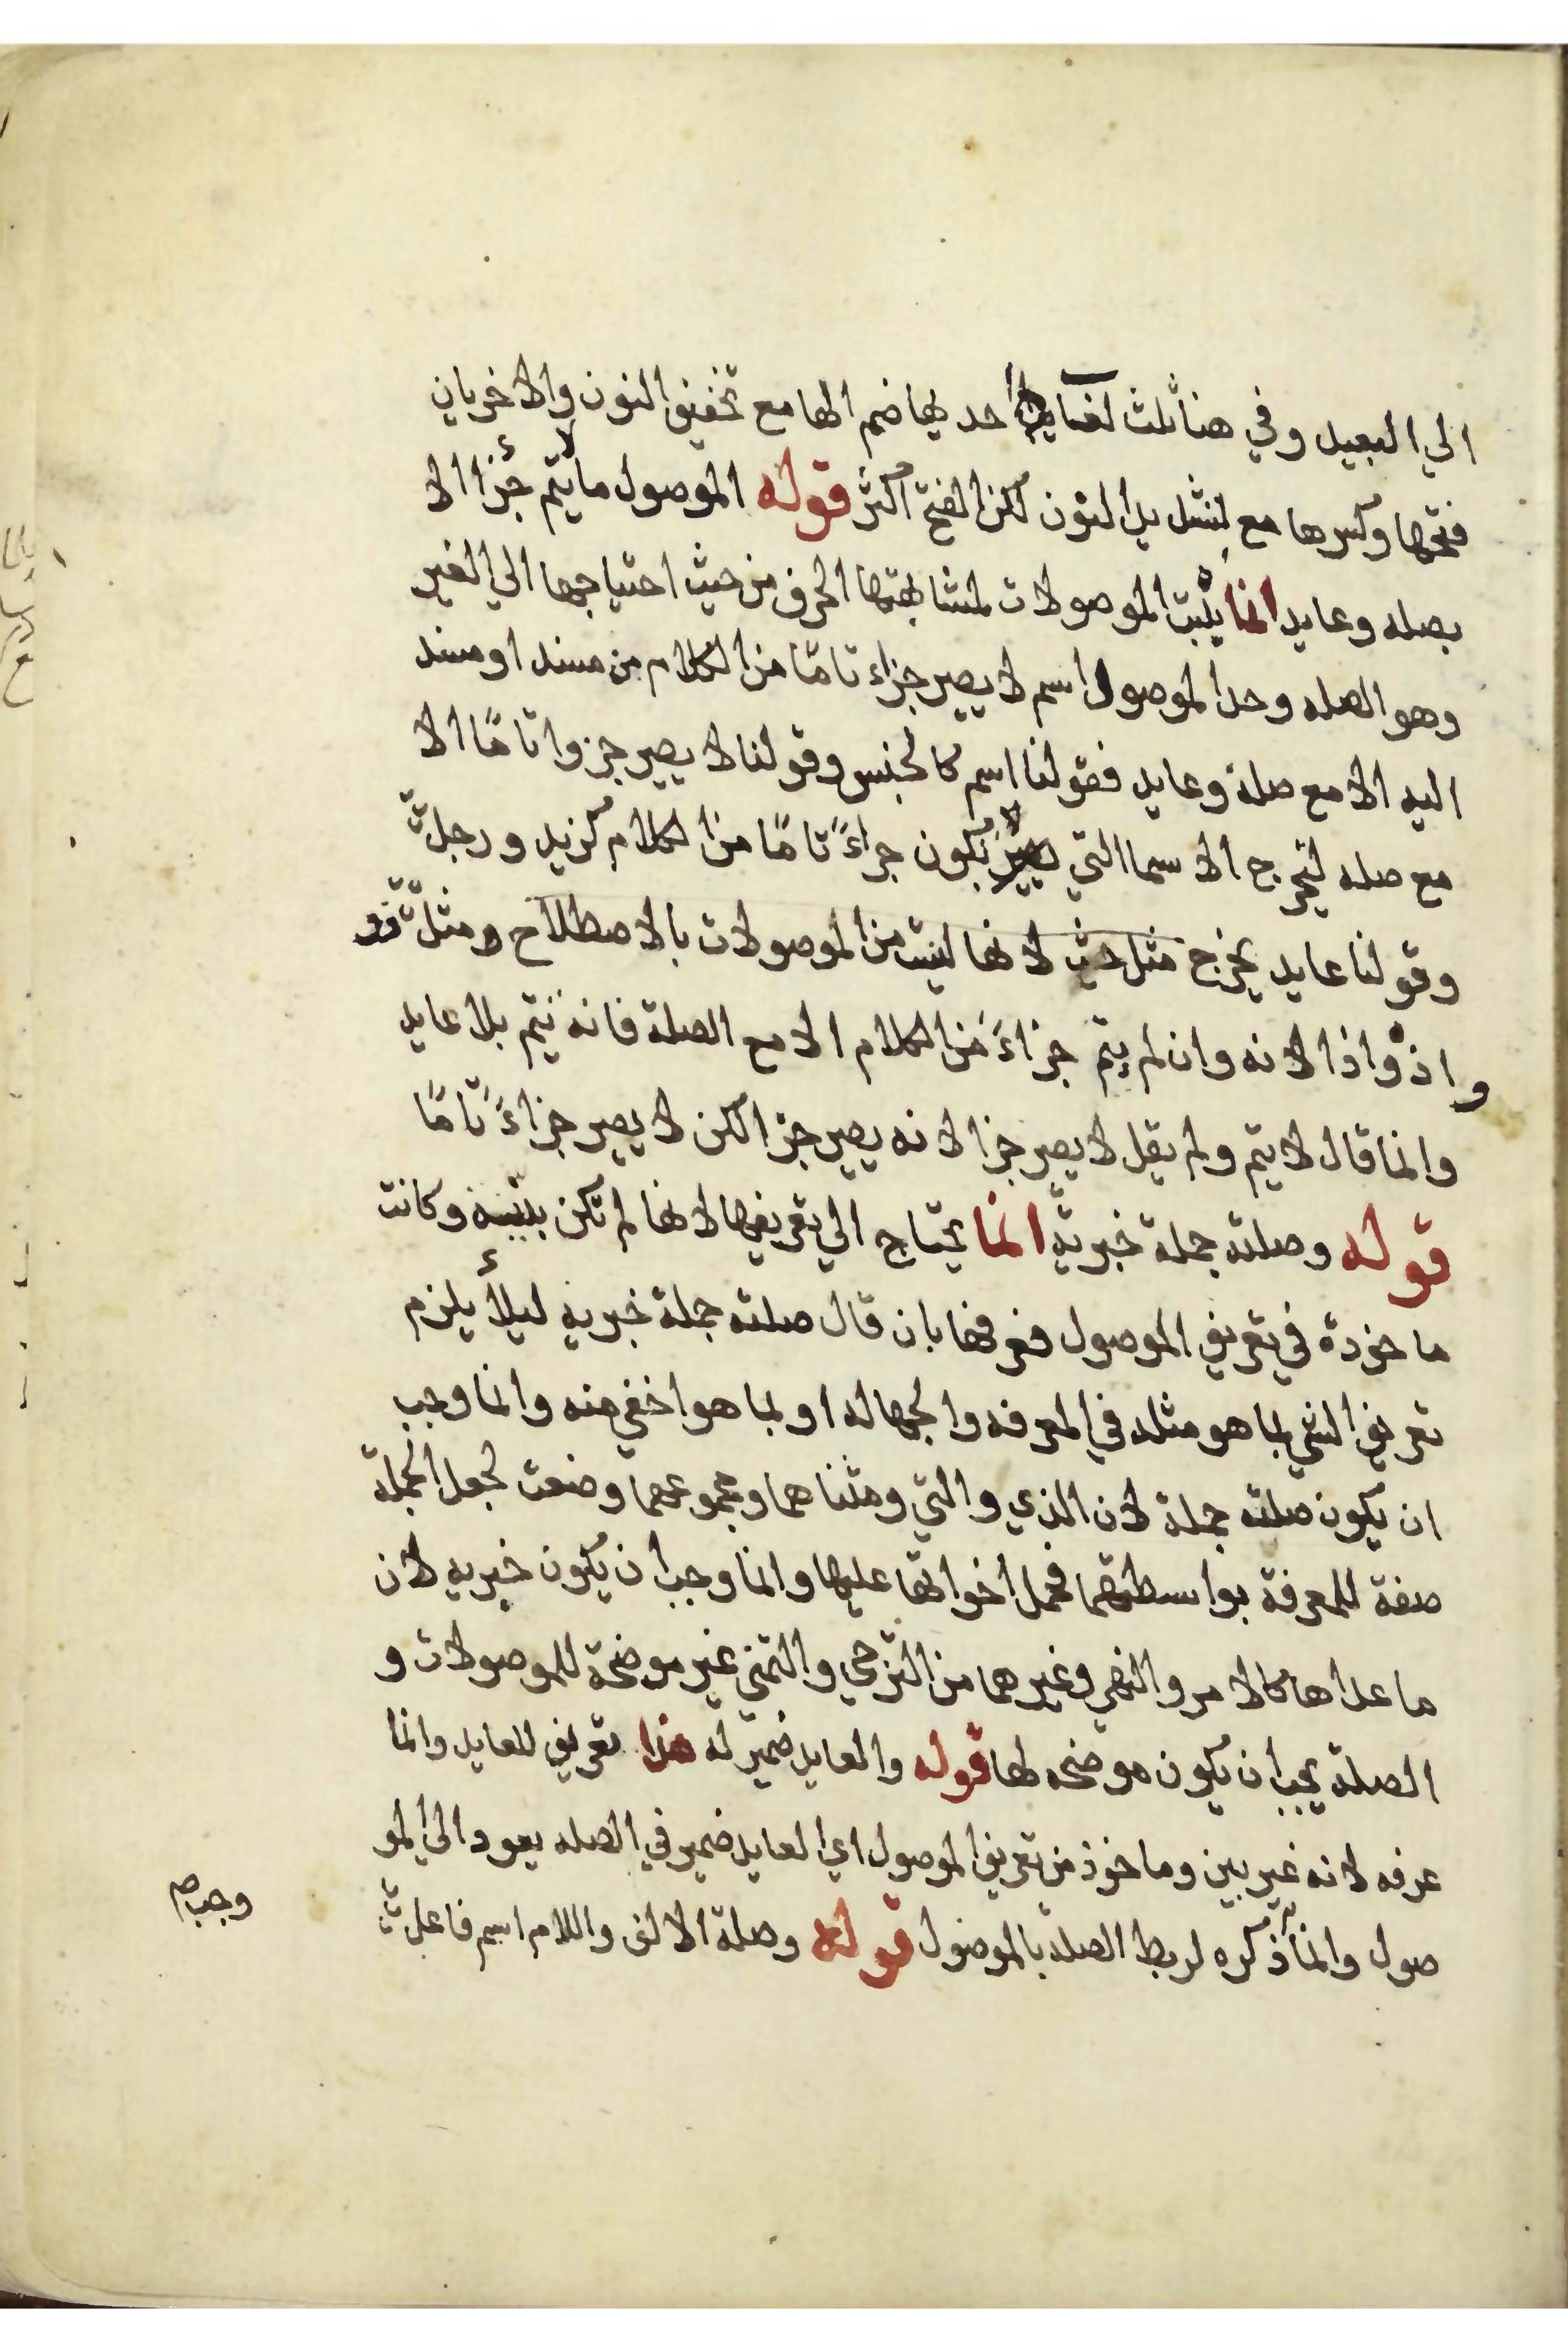 الي البعيد وفي هنا ثلث لغات احديها ضم الها مع تخفيف النون والاخريان
فتحها وكسرها مع تشديد النون لكن الفتح اكثر قوله الموصول ما لا يتم جزأ الا
بصله وعايد انما بنيت الموصولات لمشابهتها الحرف من حيث احتياجها الي الغير
وهو الصله وحد الموصول اسم لا يصير جزاء تامّا من الكلام من مسند او مسند
اليه الا مع صلة وعايد فقولنا اسم كالجنس وقولنا لا يصير جزوا تامًا الا
مع صله ليخرج الاسما التي تكون جزاءً تامًا من الكلام كزيد ورجل
وقولنا عايد يخرج مثل حيث لانها ليست من الموصولات بالاصطلاح ومثل
واذ واذا لانه وان لم يتم جزاءً من الكلام الا مع الصلة فانه يتم بلا عايد
وانما قال لا يتم ولم يقل لا يصير جزا لانه يصير جزا لكن لا يصير جزاءً تامًا
قوله وصلته جملة خبريّة انما يحتاج الي تعريفها لانها لم تكن بيّنة وكانت
ماخوذة في تعريف الموصول فعرفها بان قال صلته جملة خبريه ليلأ يلزم
تعريف الشي بما هو مثله في المعرفه والجهاله او بما هو اخفي منه وانما وجب
ان يكون صلته جملة لان الذي والتي ومثناهما ومجموعهما وضعت لجعل الجملة
صفة للمعرفة بواسطتهما فحمل اخواتها عليها وانما وجب ان يكون خبريه لان
ما عداها كالامر والنهي وغيرهما من الترجي والتمني غير موضحة للموصولات و
الصلة يجب ان يكون موضحه لها قوله والعايد ضمير له هذا تعريف للعايد وانما
عرفه لانه غير بين وماخوذ من تعريف الموصول اي العايد ضمير في الصله يعود الى المو
صول وانما ذكره لربط الصله بالموصول قوله وصلة الالف واللام اسم فاعل
وجب